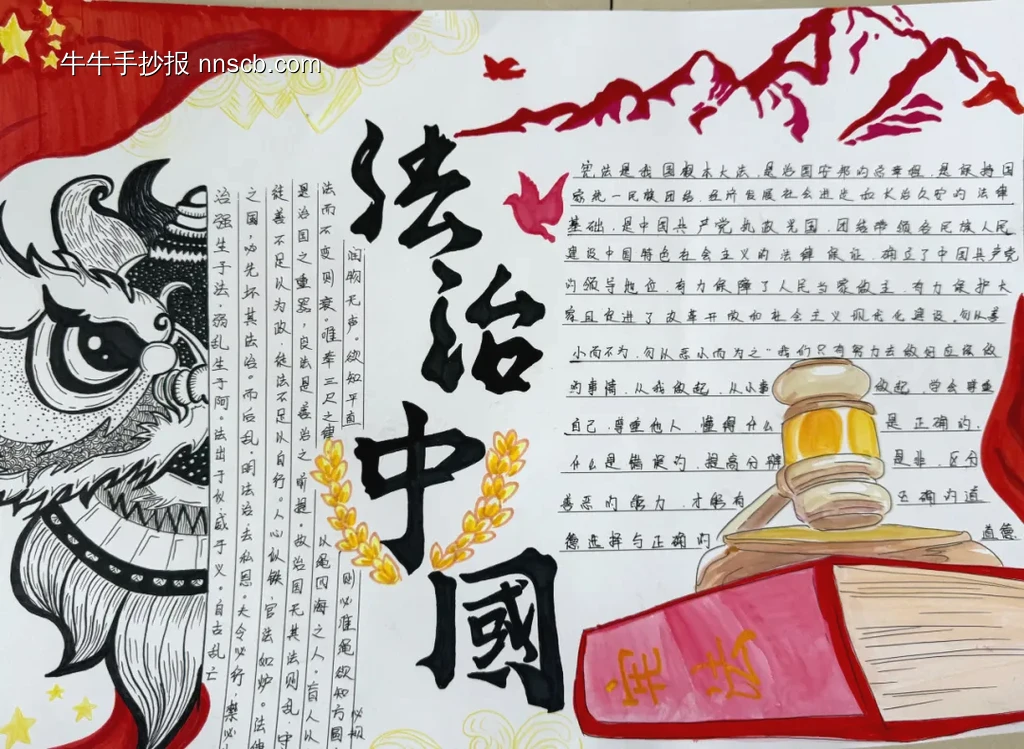 牛牛手抄报 nnscb.com
治强生于法，弱乱生于阿。法出于仁，成于义。自古乱亡
之国，必先坏其法治。而后乱，明法治，去私恩。夫令必行，禁必
徒善不足以为政，徒法不足以自行。人心似铁，官法如炉。法律
是治国之重器，良法是善治之前提。故治国无其法则乱，守
法而不变则衰。唯奉三尺之律 以绳四海之人。盲人以
润物无声。欲知平直 则必准绳欲知方圆 必规
法治中國
宪法是我国根本大法，是治国安邦的总章程，是保持国
家统一民族团结、经济发展社会进步和长治久安的法律
基础，是中国共产党执政兴国、团结带领各民族人民
建设中国特色社会主义的法律保证，确立了中国共产党
的领导地位，有力保障了人民当家做主，有力保护大
家且促进了改革开放和社会主义现代化建设。勿以善
小而不为，勿以恶小而为之"我们只有努力去做好应该做
的事情，从我做起，从小事 做起，学会尊重
自己，尊重他人，懂得什么 是正确的，
什么是错误的，提高分辨 是非，区分
善恶的能力，才能有 正确的道
德选择与正确的 道德
宪法